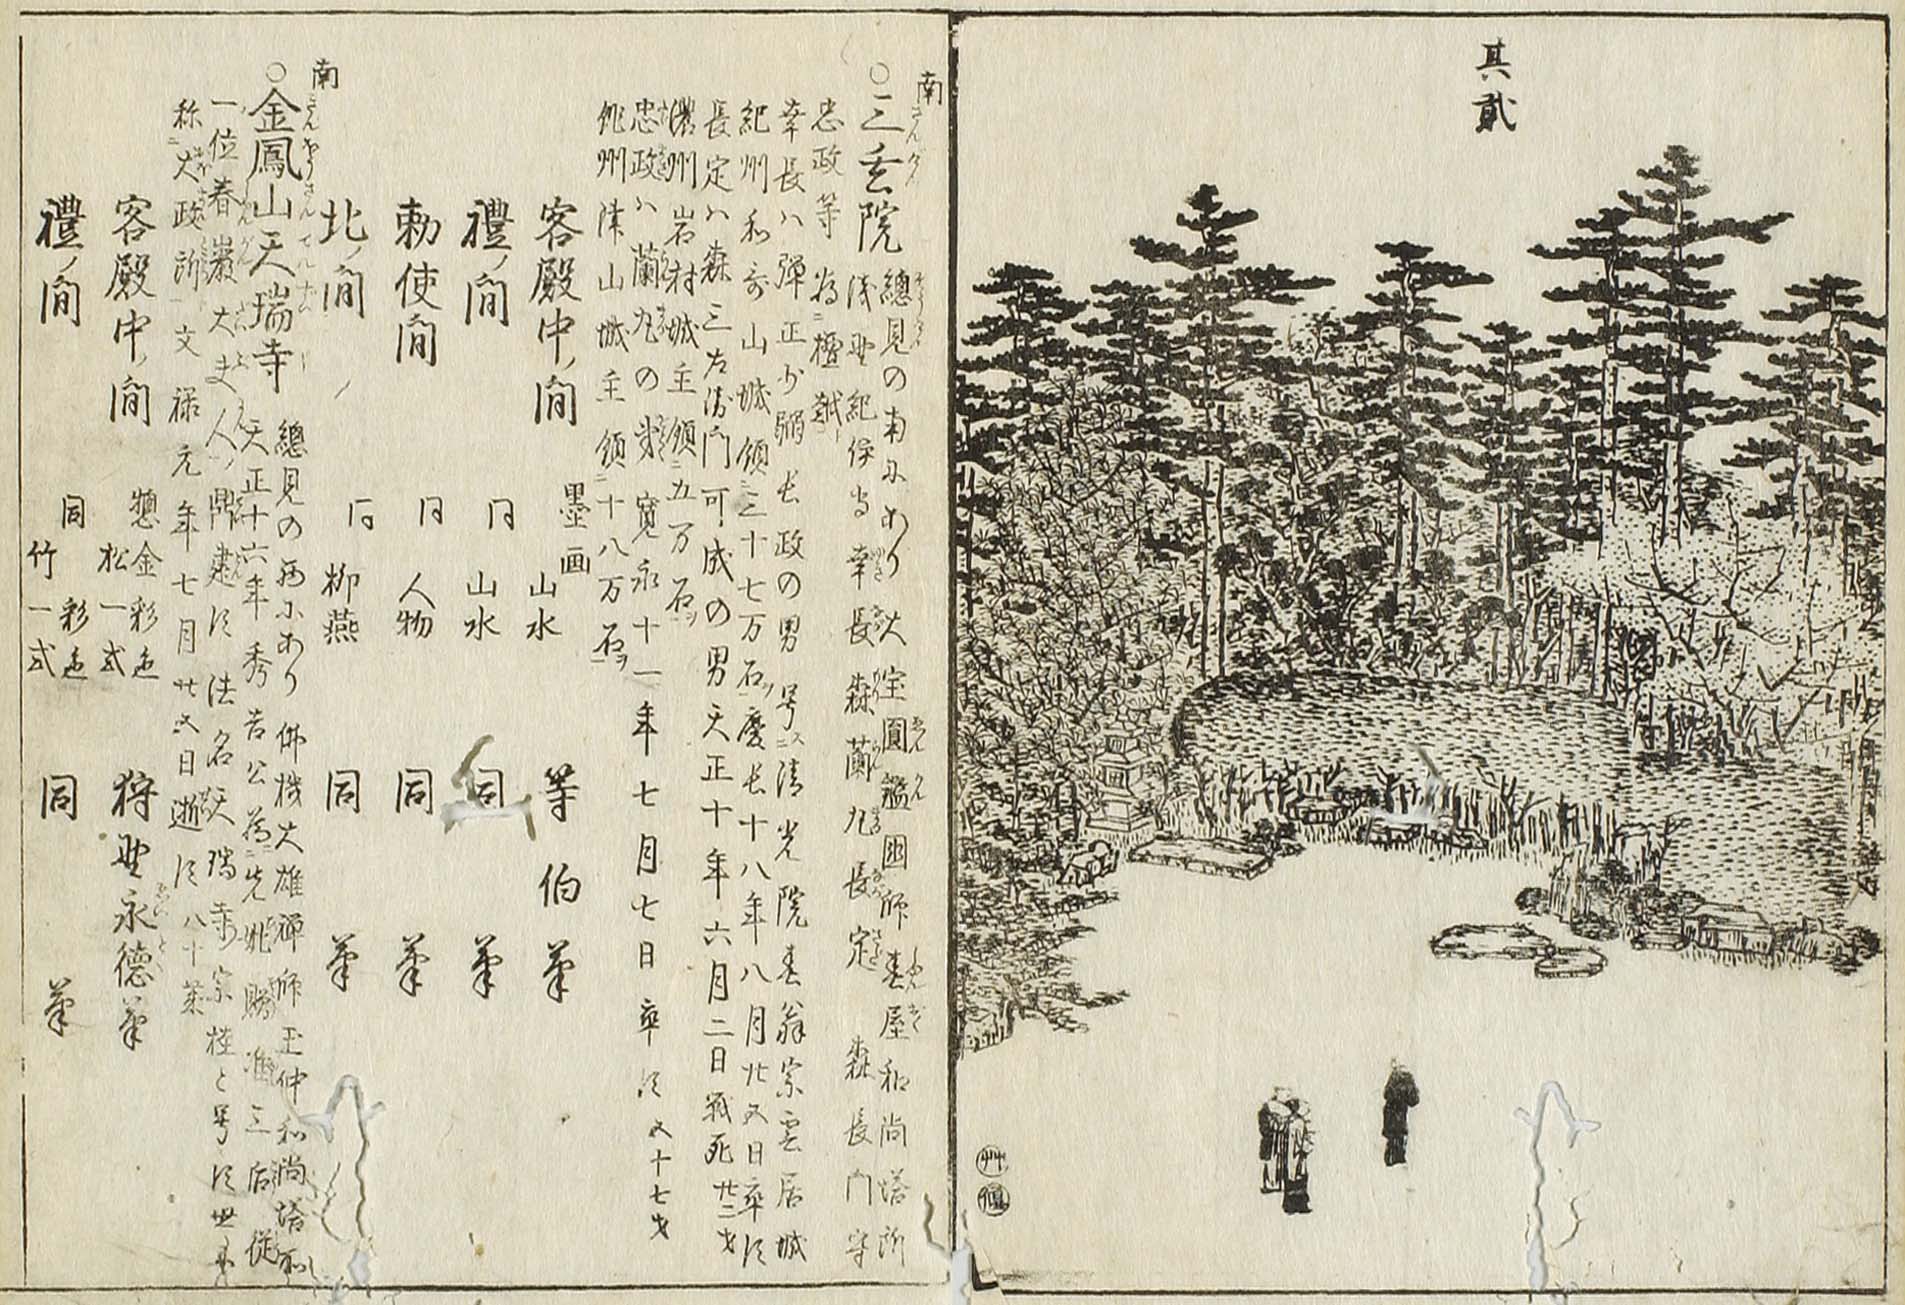 其貳
南
○三玄院 總見の南にあり 大宝圓鑑国師春屋和尚塔所
浅野紀伊守幸長 森蘭丸長定 森長門守
忠政等為檀越
幸長ハ弾正少弼長政の男 号清光院春翁宗雲居城
紀州和哥山城領三十七万石慶長十八年八月廿五日卒ス
長定ハ森三左衛門可成の男天正十年六月二日戦死廿三才
濃州岩村城主領五万石
忠政ハ蘭丸の弟 寛永十一年七月七日卒ス 五十七才
作州津山城主領十八万石
客殿中ノ間 墨画 山水 等伯筆
禮ノ間 同 山水 同 筆
勅使間 同 人物 同 筆
北ノ間 同 柳燕 同 筆
南
○金鳳山天瑞寺 總見の西にあり 佛機大雄禅師玉仲和尚塔所
天正十六年秀吉公為先妣贈准三后従
一位春巌大夫人鼎建ス法名天瑞寺宗桂と号ス世ニ
称大政所 文禄元年七月廿五日逝ス 八十
客殿中ノ間 惣金彩色 松一式 狩野永徳筆
禮ノ間 同彩色 竹一式 同 筆